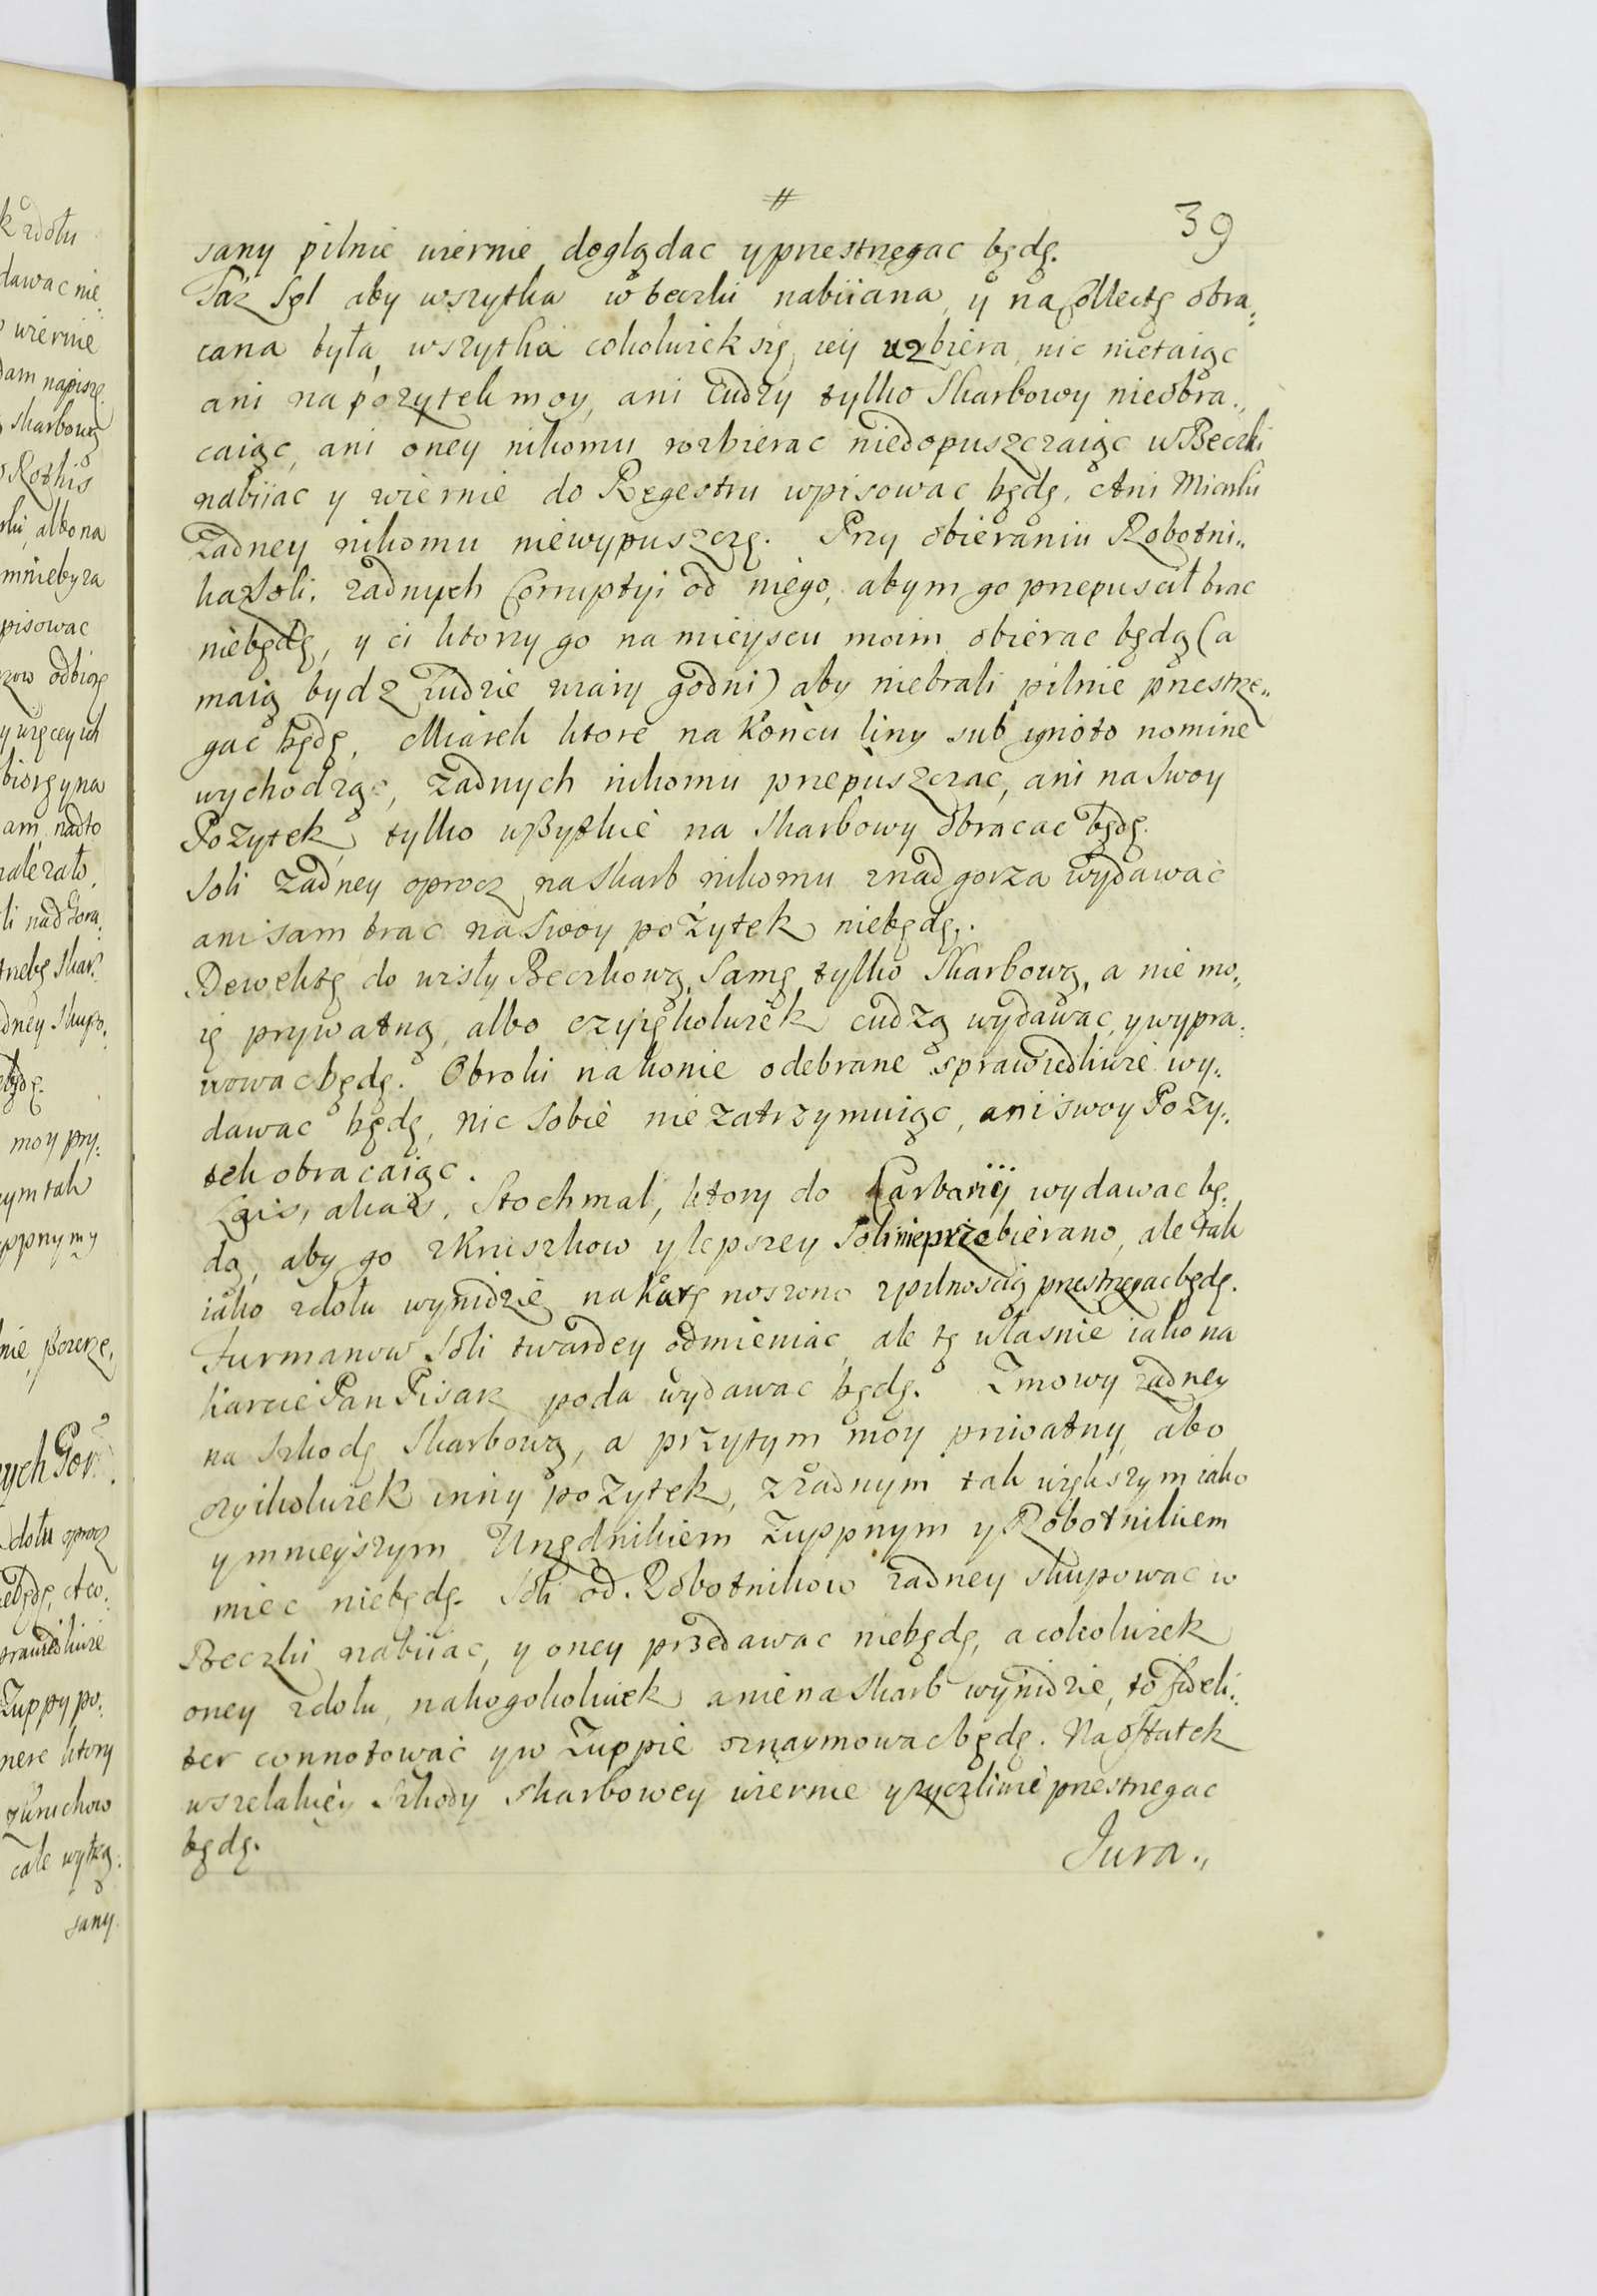 #
39
sany pilnie wiernie doglądac y przestrzegac będę.
Taż Sol aby wszytka w beczki nabiiana, y na Collectę obra„
cana była, wszytka cokolwiek się iey uzbiera, nic nietaiąc
ani na pożytek moy, ani Cudzy tylko Skarbowy nieobra„
caiąc, ani oney nikomu rozbierac niedopuszczaiąc w Beczki
nabiiac y wiernie do Regestru wpisowac będę. Ani Miarki
Żadney nikomu niewypuszczę. Przy obieraniu Robotni„
ka z Soli, żadnych Corruptyi od niego, abym go przepuscił brac
niebędę, y ci ktorzy go na mieyscu moim obierac będą (a
maią bydz Ludzie wiary godni) aby niebrali pilnie przestrze„
gac będę. Miarek ktore na Koncu liny sub ignoto nomine
wychodzą, Żadnych nikomu przepuszczac, ani na Swoy
Pożytek, tylko wszytkie na Skarbowy obracac będę.
Soli Żadney oprocz na Skarb nikomu z nadgorza wydawać
ani sam brac na Swoy pożytek niebędę.
Dewektę do wisły Beczkową, Samę tylko Skarbową, a nie mo„
ię prywatną, albo czyiękolwiek cudzą wydawac, y wypra„
wowac będę. Obroki na konie odebrane sprawiedliwie wy„
dawac będę, nic Sobie nie zatrzymuiąc, ani swoy Poży„
tek obracaiąc.
Lgis, alias, Stochmal, ktory do Karbarij wydawac bę„
dą, aby go z Kruszkow y lepszey Soli nieprzebierano, ale tak
iako z dołu wynidzie na Katę noszono z pilnoscią przestrzegac będę.
Furmanow Soli twardey odmieniac, ale tę własnie iako na
karcie Pan Pisarz poda wydawac będę. Zmowy żadney
na Szkodę Skarbową, a przytym moy priwatny, abo
czyikolwiek inny pożytek, z żadnym tak większym iako
y mnieyszym Urzędnikiem Żuppnym y Robotnikiem
miec niebędę. Soli od Robotnikow żadney skupowac w
Beczki nabiiac, y oney przedawac niebędę, a cokolwiek
oney z dołu, na kogokolwiek a nie na Skarb wynidzie, to fideli„
ter connotować y w Żuppie oznaymowac będę. Na ostatek
wszelakiey Szkody skarbowey wiernie y życzliwie przestrzegac
będę.
Jura„